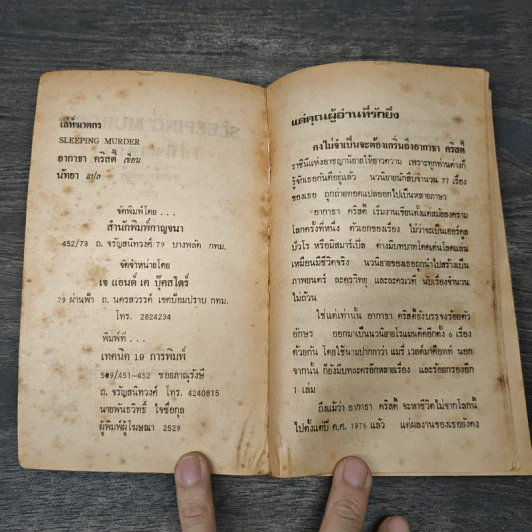 เล่ห์ฆาตกร
SLEEPING MURDER
อากาธา คริสตี้ เขียน
นัทธา แปล
จัดพิมพ์โดย . . .
สำนักพิมพ์กาญจนา
452/73 ถ. จรัญสนิทวงศ์ 79 บางพลัด กทม.
จัดจำหน่ายโดย
เจ แอนด์ เค บุ๊คสโตร์
79 ผ่านฟ้า ถ. นครสวรรค์ เขตป้อมปราบ กทม.
โทร. 2824234
พิมพ์ที่ . . .
เทคนิค 19 การพิมพ์
509/451-452 ซอยภาณุรังษี
ถ. จรัญสนิทวงศ์ โทร. 4240815
นายพันธวิทธิ์ ใจซื่อกุล
ผู้พิมพ์ผู้โฆษณา 2529
แด่คุณผู้อ่านที่รักยิ่ง
คงไม่จำเป็นจะต้องเกริ่นถึงอากาธา คริสตี้
ราชินีแห่งอาชญานิยายให้ยาวความ เพราะทุกท่านต่างก็
รู้จักเธอกันดีอยู่แล้ว นวนิยายนักสืบจำนวน 77 เรื่อง
ของเธอ ถูกถ่ายทอดแปลออกไปเป็นหลายภาษา
อากาธา คริสตี้ เริ่มงานเขียนตั้งแต่สมัยสงคราม
โลกครั้งที่หนึ่ง ตัวเอกของเรื่อง ไม่ว่าจะเป็นเฮอร์คูล
ปัวโร หรือมิสมาร์เปิ้ล ต่างมีบทบาทโดดเด่นโลดแล่น
เหมือนมีชีวิตจริง นวนิยายของเธอถูกนำไปสร้างเป็น
ภาพยนตร์ ละครวิทยุ และละครเวที นับเรื่องจำนวน
ไม่ถ้วน
ใช่แต่เท่านั้น อากาธา คริสตี้ยังบรรจงร้อยตัว
อักษร ออกมาเป็นนวนิยายโรแมนติคอีกตั้ง 6 เรื่อง
ด้วยกัน โดยใช้นามปากกาว่า แมรี่ เวสต์มาค็อทท์ นอก
จากนั้น ก็ยังมีบทละครอีกหลายเรื่อง และร้อยกรองอีก
1 เล่ม
ถึงแม้ว่า อากาธา คริสตี้ จะหาชีวิตไม่จากโลกนี้
ไปตั้งแต่ปี ค.ศ. 1976 แล้ว แต่ผลงานของเธอยังคง